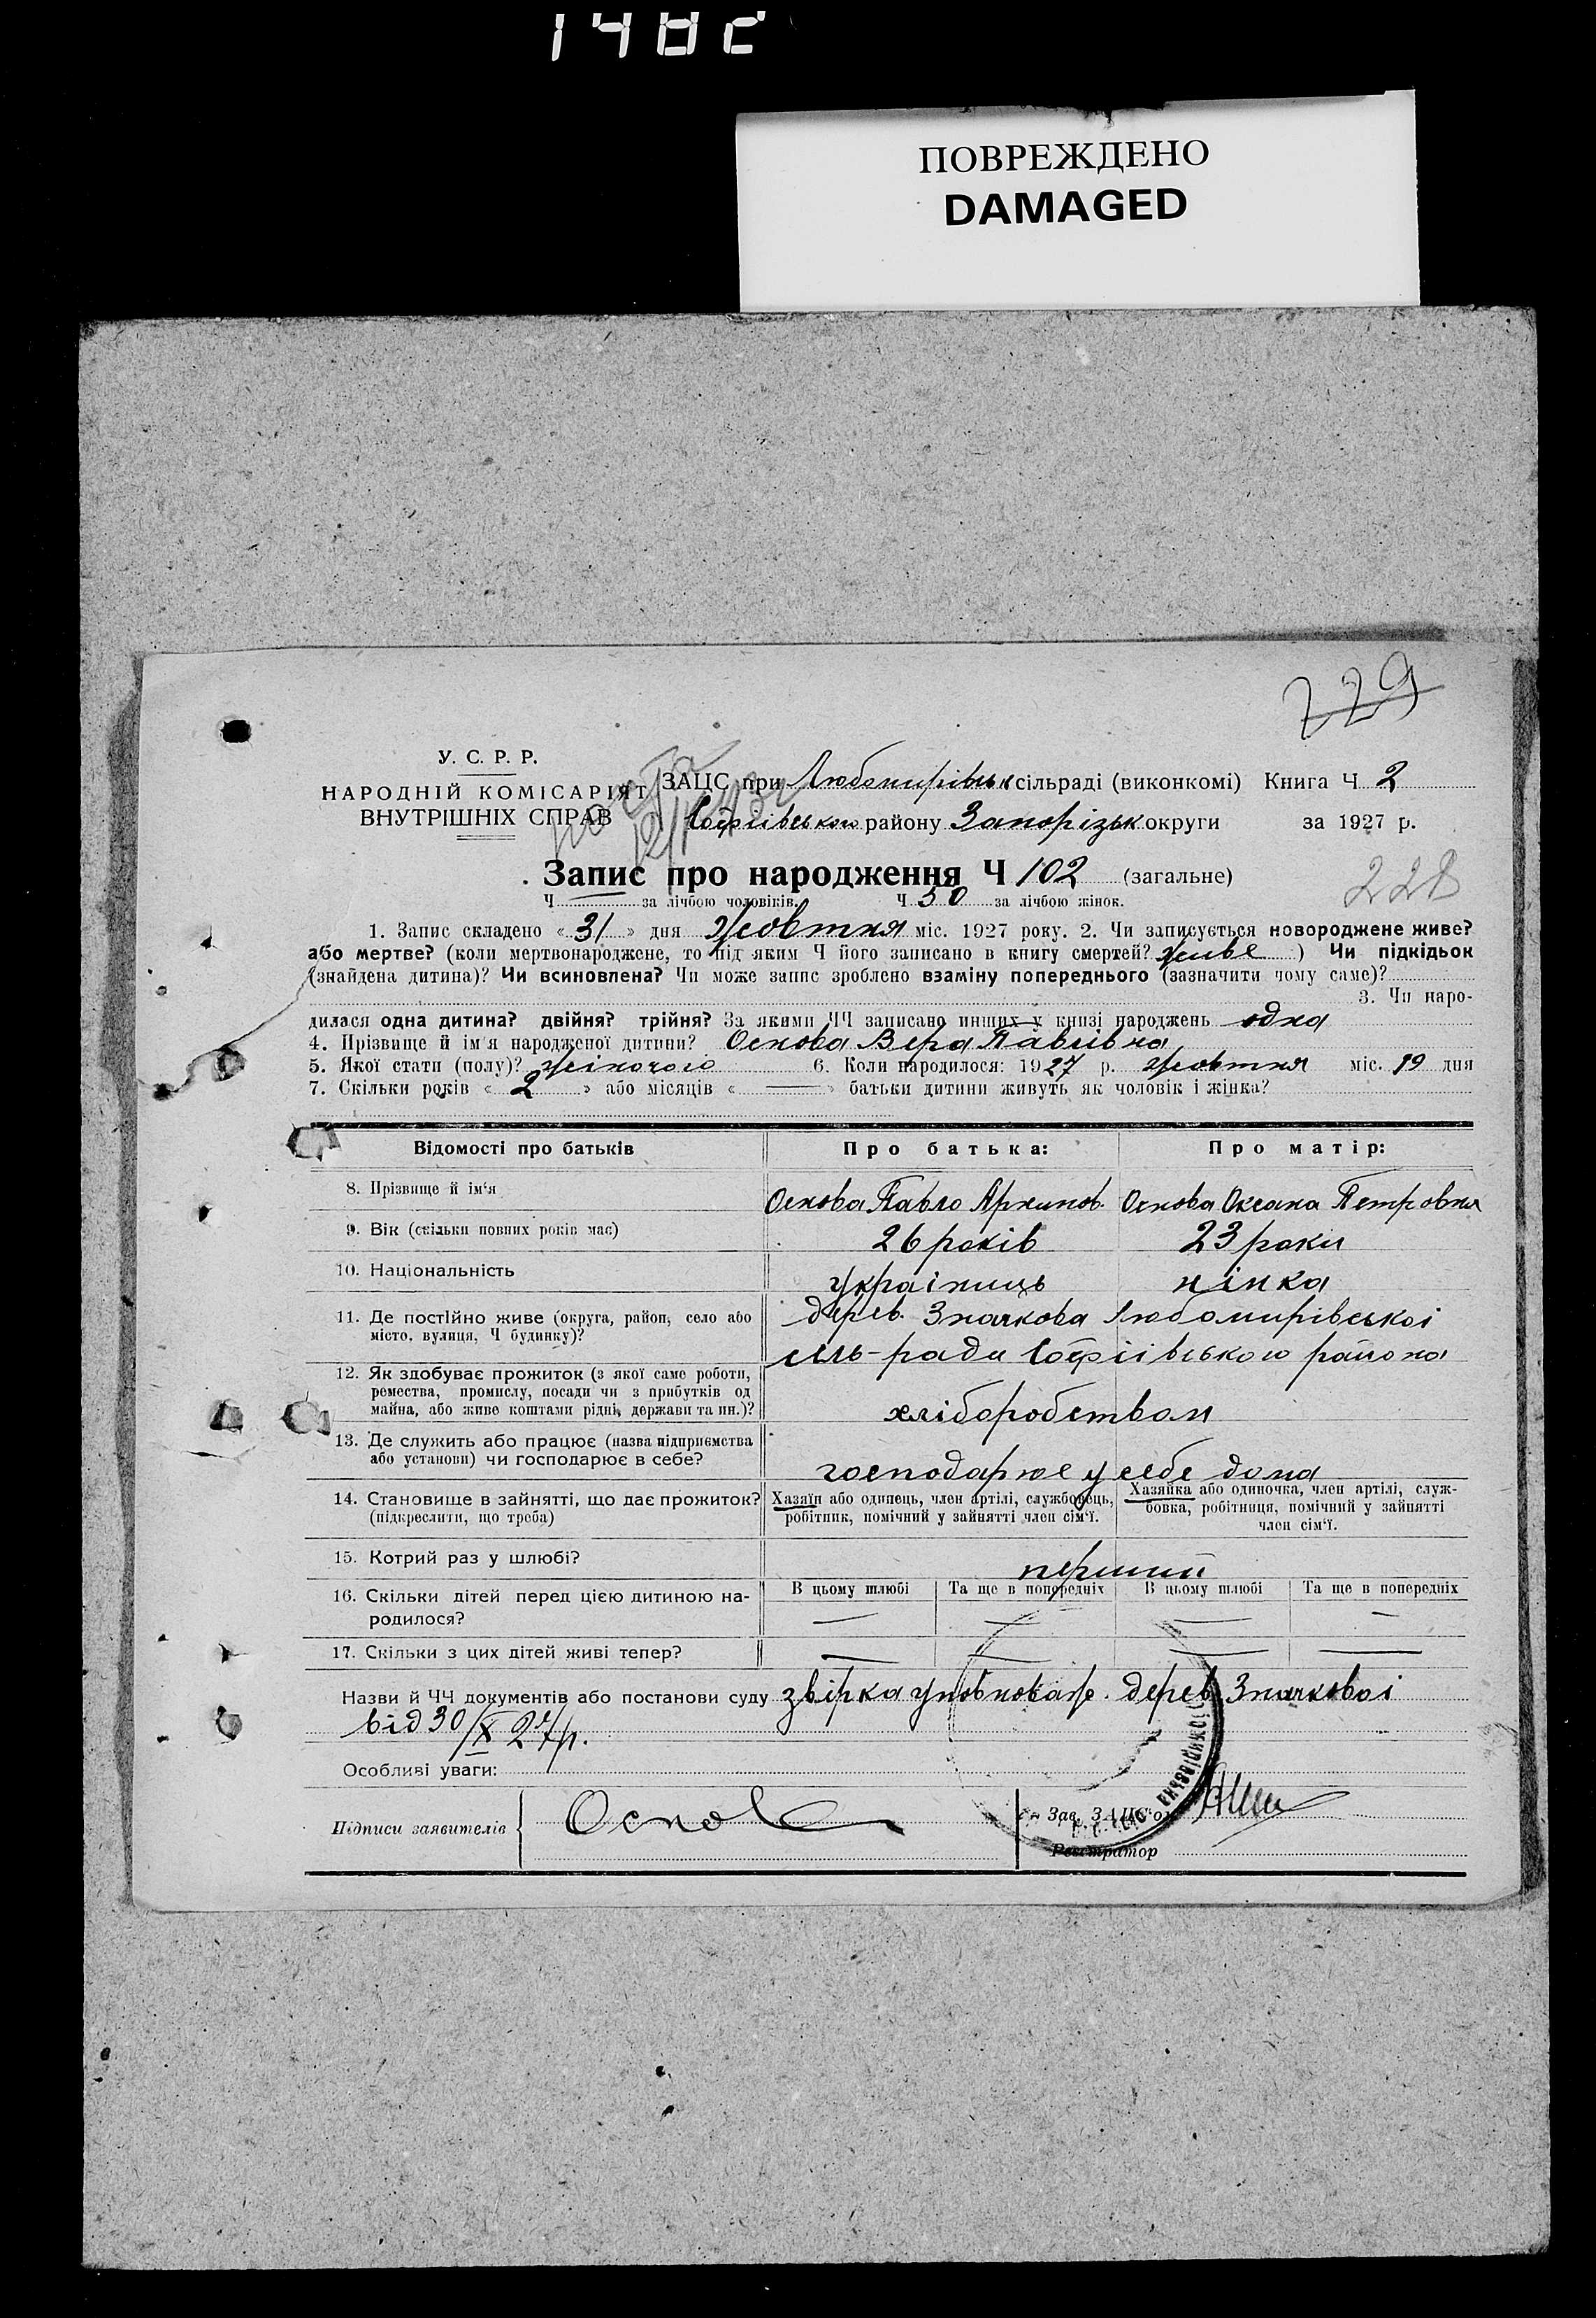 ПОВРЕЖДЕНО
DAMAGED
229
У. С. Р. Р.
НАРОДНІЙ КОМІСАРІЯТ
ВНУТРІШНІХ СПРАВ
ЗАЦС при Любомирівськ сільраді (виконкомі) Книга Ч 2
Софіївського району Запорізьк округи за 1927 р.
Запис про народження Ч 102 (загальне)
228
Ч за лічбою чоловіків. Ч 50 за лічбою жінок.
1. Запис складено «31» дня Жовтня міс. 1927 року. 2. Чи записується новороджене живе?
або мертве? (коли мертвонароджене, то під яким Ч його записано в книгу смертей? живе ) Чи підкідьок
(знайдена дитина)? Чи всиновлена? Чи може запис зроблено взаміну попереднього (зазначити чому саме)?
3. Чи наро-
дилася одна дитина? двійня? трійня? За якими ЧЧ записано инших у книзі народжень одна
4. Прізвище й ім'я народженої дитини? Основа Вера Павлівна
5. Якої стати (полу)? жіночого 6. Коли народилося: 1927 р. жовтня міс. 19 дня
7. Скільки років «2» або місяців «—» батьки дитини живуть як чоловік і жінка?
Відомості про батьків Про батька: Про матір:
8. Прізвище й ім'я Основа Павло Архипов. Основа Оксана Петровна
9. Вік (скільки повних років має) 26 років 23 роки
10. Національність українець німка
11. Де постійно живе (округа, район, село або
місто, вулиця, Ч будинку)?
дерев. Значкова Любомирівської
сіль-ради Софіївського району
12. Як здобуває прожиток (з якої саме роботи,
ремества, промислу, посади чи з прибутків од
майна, або живе коштами рідні, держави та ин.)?
хліборобством
13. Де служить або працює (назва підприємства
або установи) чи господарює в себе?
господарює у себе дома
14. Становище в зайнятті, що дає прожиток?
(підкреслити, що треба)
Хазяїн або одинець, член артілі, службовець,
робітник, помічний у зайнятті член сім'ї.
Хазяйка або одиночка, член артілі, служ-
бовка, робітниця, помічний у зайнятті
член сім'ї.
15. Котрий раз у шлюбі? перший
16. Скільки дітей перед цією дитиною на-
родилося?
В цьому шлюбі Та ще в попередніх В цьому шлюбі Та ще в попередніх
— — — —
17. Скільки з цих дітей живі тепер? — — — —
Назви й ЧЧ документів або постанови суду звірка уповноваж. дерев Значкової
від 30/X 27 р.
Особливі уваги:
Підписи заявителів Основа
Зав. ЗАЦС'ом
Реєстратор